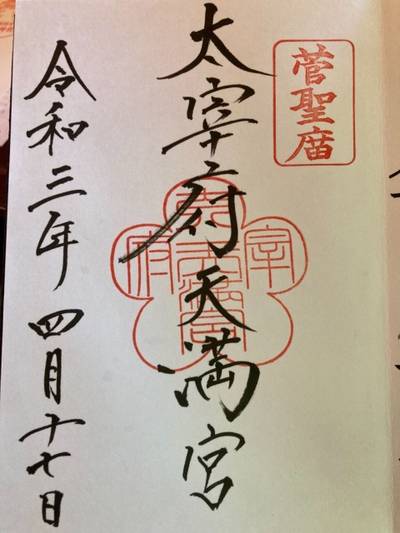 菅聖庿
太宰府天満宮
令和三年四月十七日